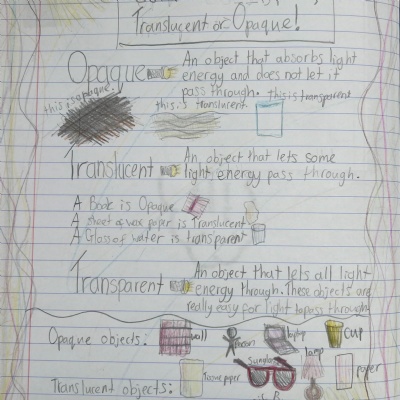 Translucent or Opaque!
Opaque An object that absorbs light
energy and does not let it
pass through.
this is opaque. this is translucent. this is transparent
Translucent An object that lets some
light energy pass through.
A Book is Opaque
A sheet of wax paper is Translucent
A Glass of water is transparent
Transparent An object that lets all light
energy through. These objects are
really easy for light to pass through
Opaque objects: wall Person laptop cup
Sunglasses lamp paper
Translucent objects: Tissue paper